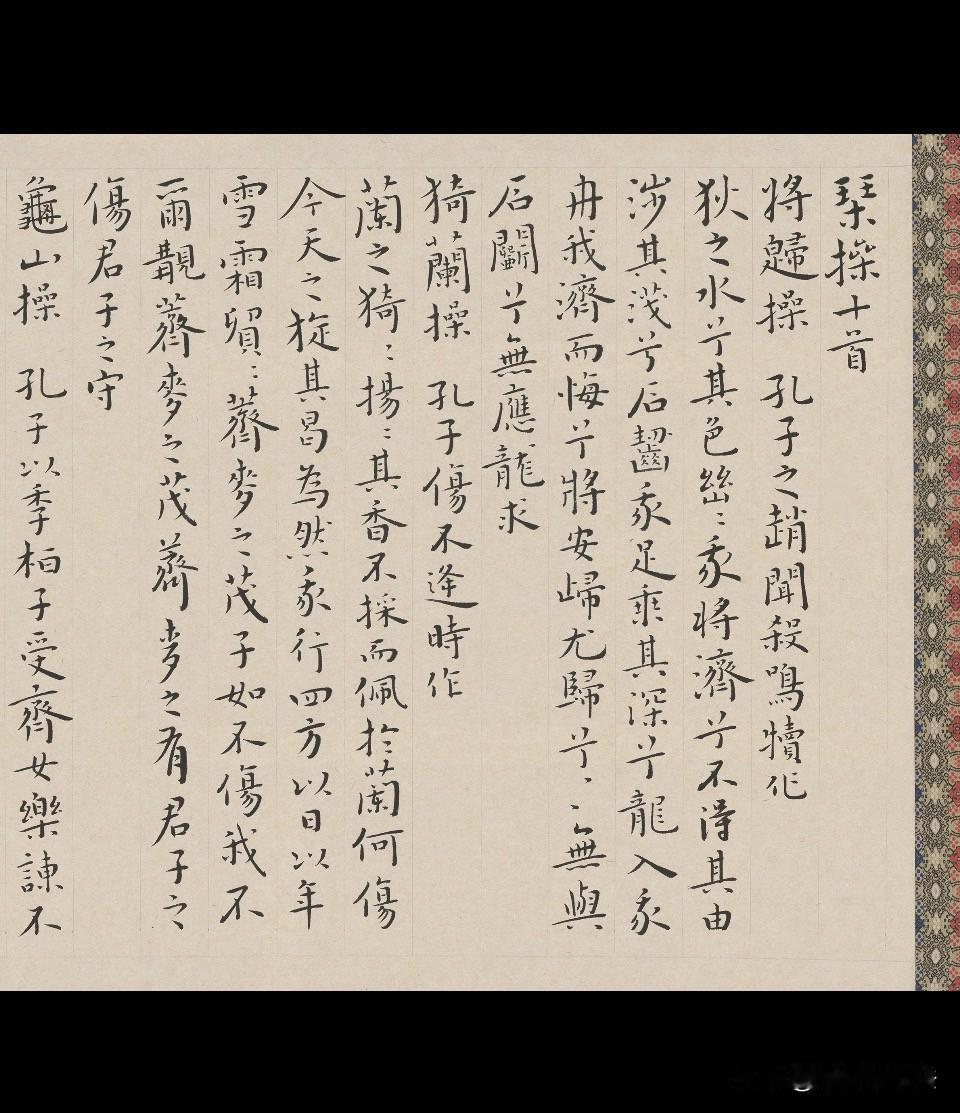 琹操十首
將歸操 孔子之趙聞殺鳴犢作
狄之水兮其色幽〻我將濟兮不得其由
涉其淺兮石齧我足乗其深兮龍入我
舟我濟而悔兮將安歸尤歸兮〻無與
石鬬兮無應龍求
猗蘭操 孔子傷不逢時作
蘭之猗〻揚〻其香不採而佩於蘭何傷
今天之旋其曷為然我行四方以日以年
雪霜貿〻薺麥之茂子如不傷我不
爾覯薺麥之茂薺麥之有君子之
傷君子之守
龜山操 孔子以季桓子受齊女樂諫不